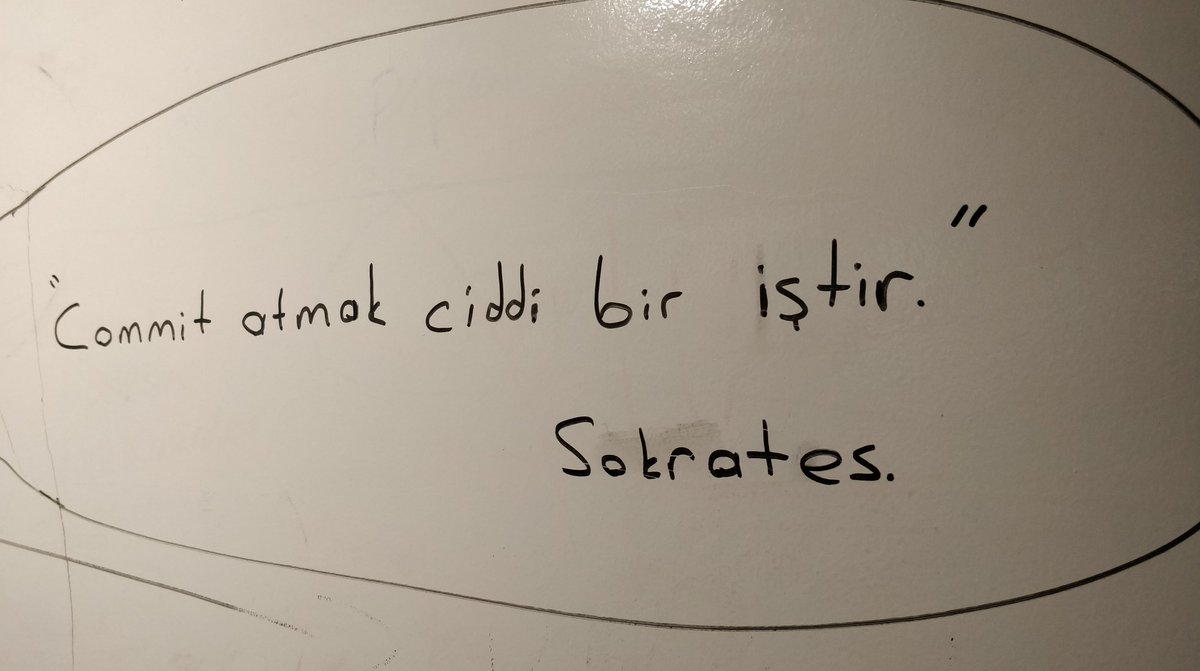 "Commit atmak ciddi bir iştir."
Sokrates.